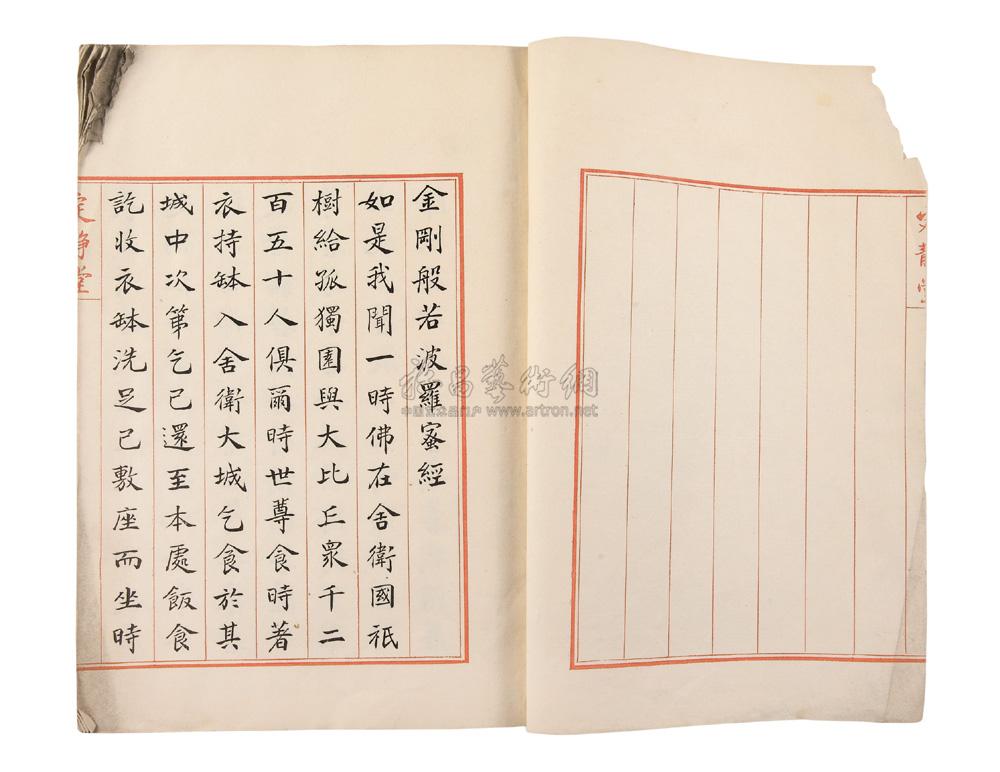 金剛般若波羅蜜經
如是我聞一時佛在舍衛國祇
樹給孤獨園與大比丘眾千二
百五十人俱爾時世尊食時著
衣持缽入舍衛大城乞食於其
城中次第乞已還至本處飯食
訖收衣缽洗足已敷座而坐時
雅昌藝術網
www.artron.net